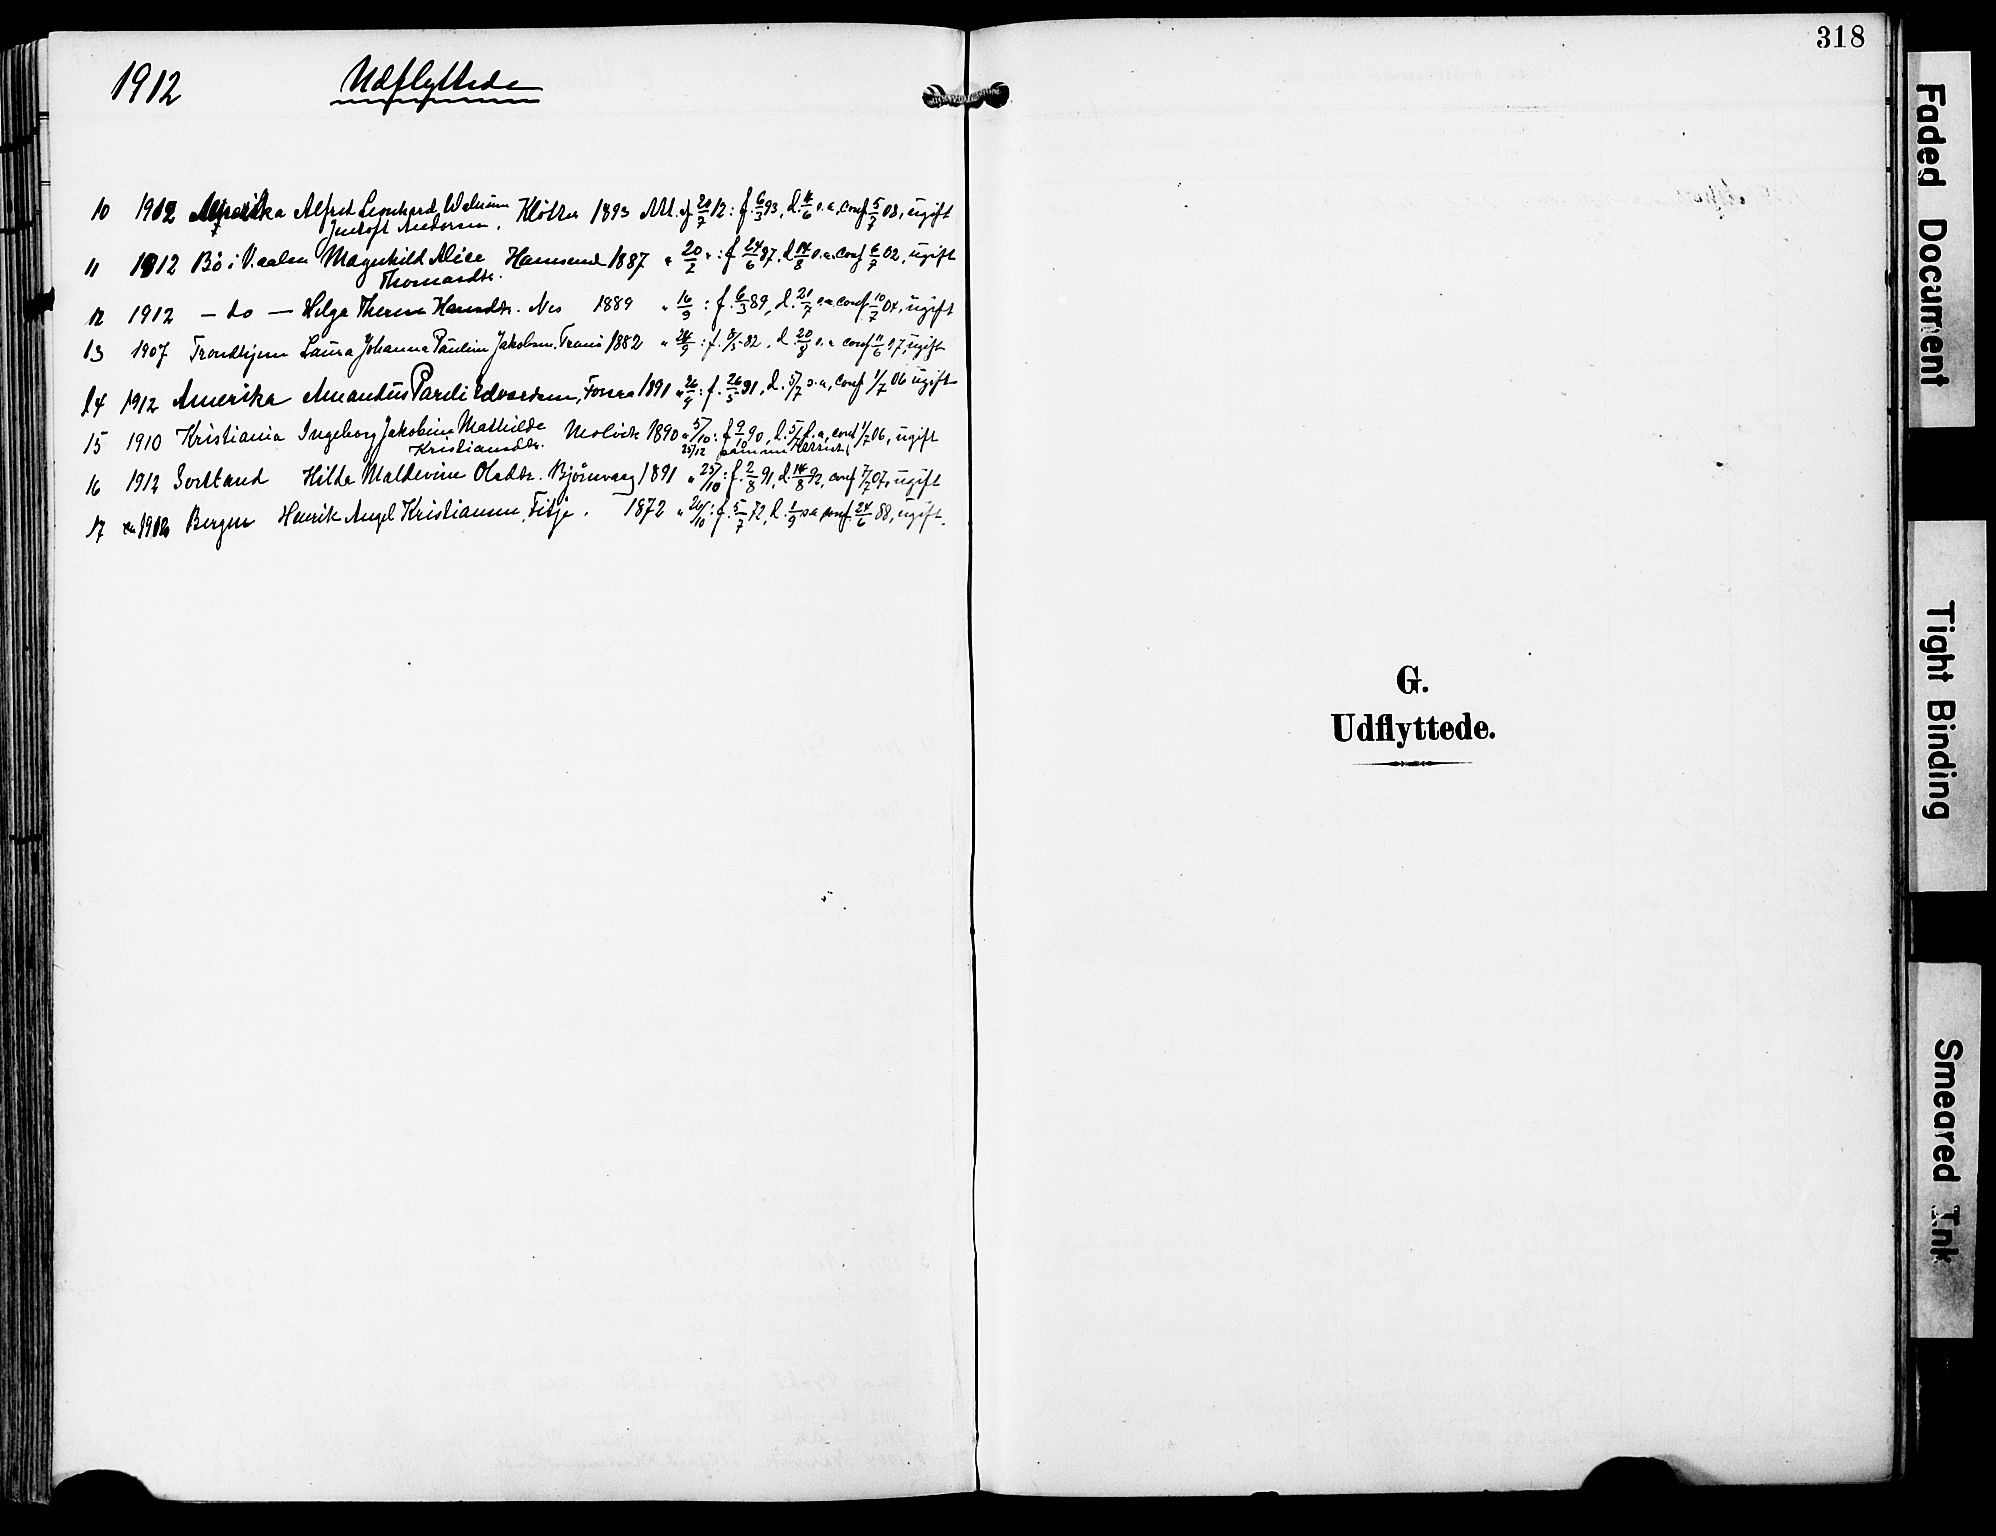 1912 Udflyttede
10 1912 Amerika Alfred Leonhard Klotten 1893 Att. af 20/7 12: f. 6/3 93, d. s.a. conf 5/7 08, ugift
Andersen.
11 1912 Bø i V.aalen Magnhild Alice Hamsund 1887 " 20/2 ": f 24/6 87, d. 14/8 s.a. conf 6/7 02, ugift
Thomasdtr.
12 1912 - do - Helga Therese Hansdtr. Nes 1889 " 16/9 : f. 6/3 89, d. 21/7 s.a. conf 10/7 04, ugift
13 1907 Trondhjem Laura Johanna Pauline Jakobsen. 1882 " 24/9 : f. 8/5 82, d. 20/8 s.a conf 11/6 97, ugift
14 1912 Amerika Amandus Pareli Edvardsen, 1891 " 26/9 : f. 26/5 91, d. 5/7 s.a, conf 1/7 06 ugift
15 1910 Kristiania Ingeborg Jakobine Mathilde Molvik 1890 " 5/10 : f 9/10 90, d. 5/7 conf 1/7 06, ugift
Kristiansdtr. 25/12 samme
16 1912 Sortland Hilda Maldevine Olsdtr. Bjørnvaag 1891 " 25/10 : f. 2/8 91, d. 14/8 92, conf 7/7 07, ugift
17 1912 Bergen Henrik Angel Kristiansen, Fitje. 1872 " 26/10 : f. 5/7 72, d. 1/9 s.a conf. 24/6 88, ugift.
318
G.
Udflyttede.
Faded Document
Tight Binding
Smeared Ink